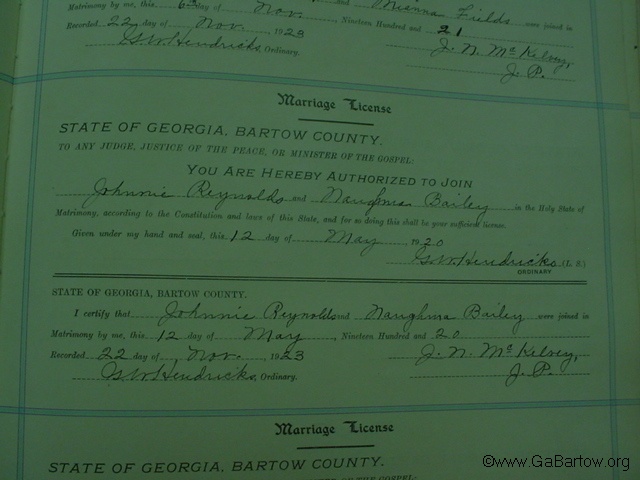 Matrimony by me, this 6th day of Nov. and Mienna Fields were joined in
Recorded 22 day of Nov. 1923 , Nineteen Hundred and 21
G.W. Hendricks Ordinary. J. N. McKelvey,
J. P.
Marriage License
STATE OF GEORGIA, BARTOW COUNTY.
TO ANY JUDGE, JUSTICE OF THE PEACE, OR MINISTER OF THE GOSPEL:
YOU ARE HEREBY AUTHORIZED TO JOIN
Johnnie Reynolds and Naughma Bailey in the Holy State of
Matrimony, according to the Constitution and laws of this State, and for so doing this shall be your sufficient license.
Given under my hand and seal, this 12 day of May , 1920
G.W. Hendricks (L. S.)
ORDINARY
STATE OF GEORGIA, BARTOW COUNTY.
I certify that Johnnie Reynolds and Naughma Bailey were joined in
Matrimony by me, this 12 day of May , Nineteen Hundred and 20
Recorded 22 day of Nov. 1923 J. N. McKelvey,
G.W. Hendricks, Ordinary. J. P.
Marriage License
STATE OF GEORGIA, BARTOW COUNTY.
©www.GaBartow.org